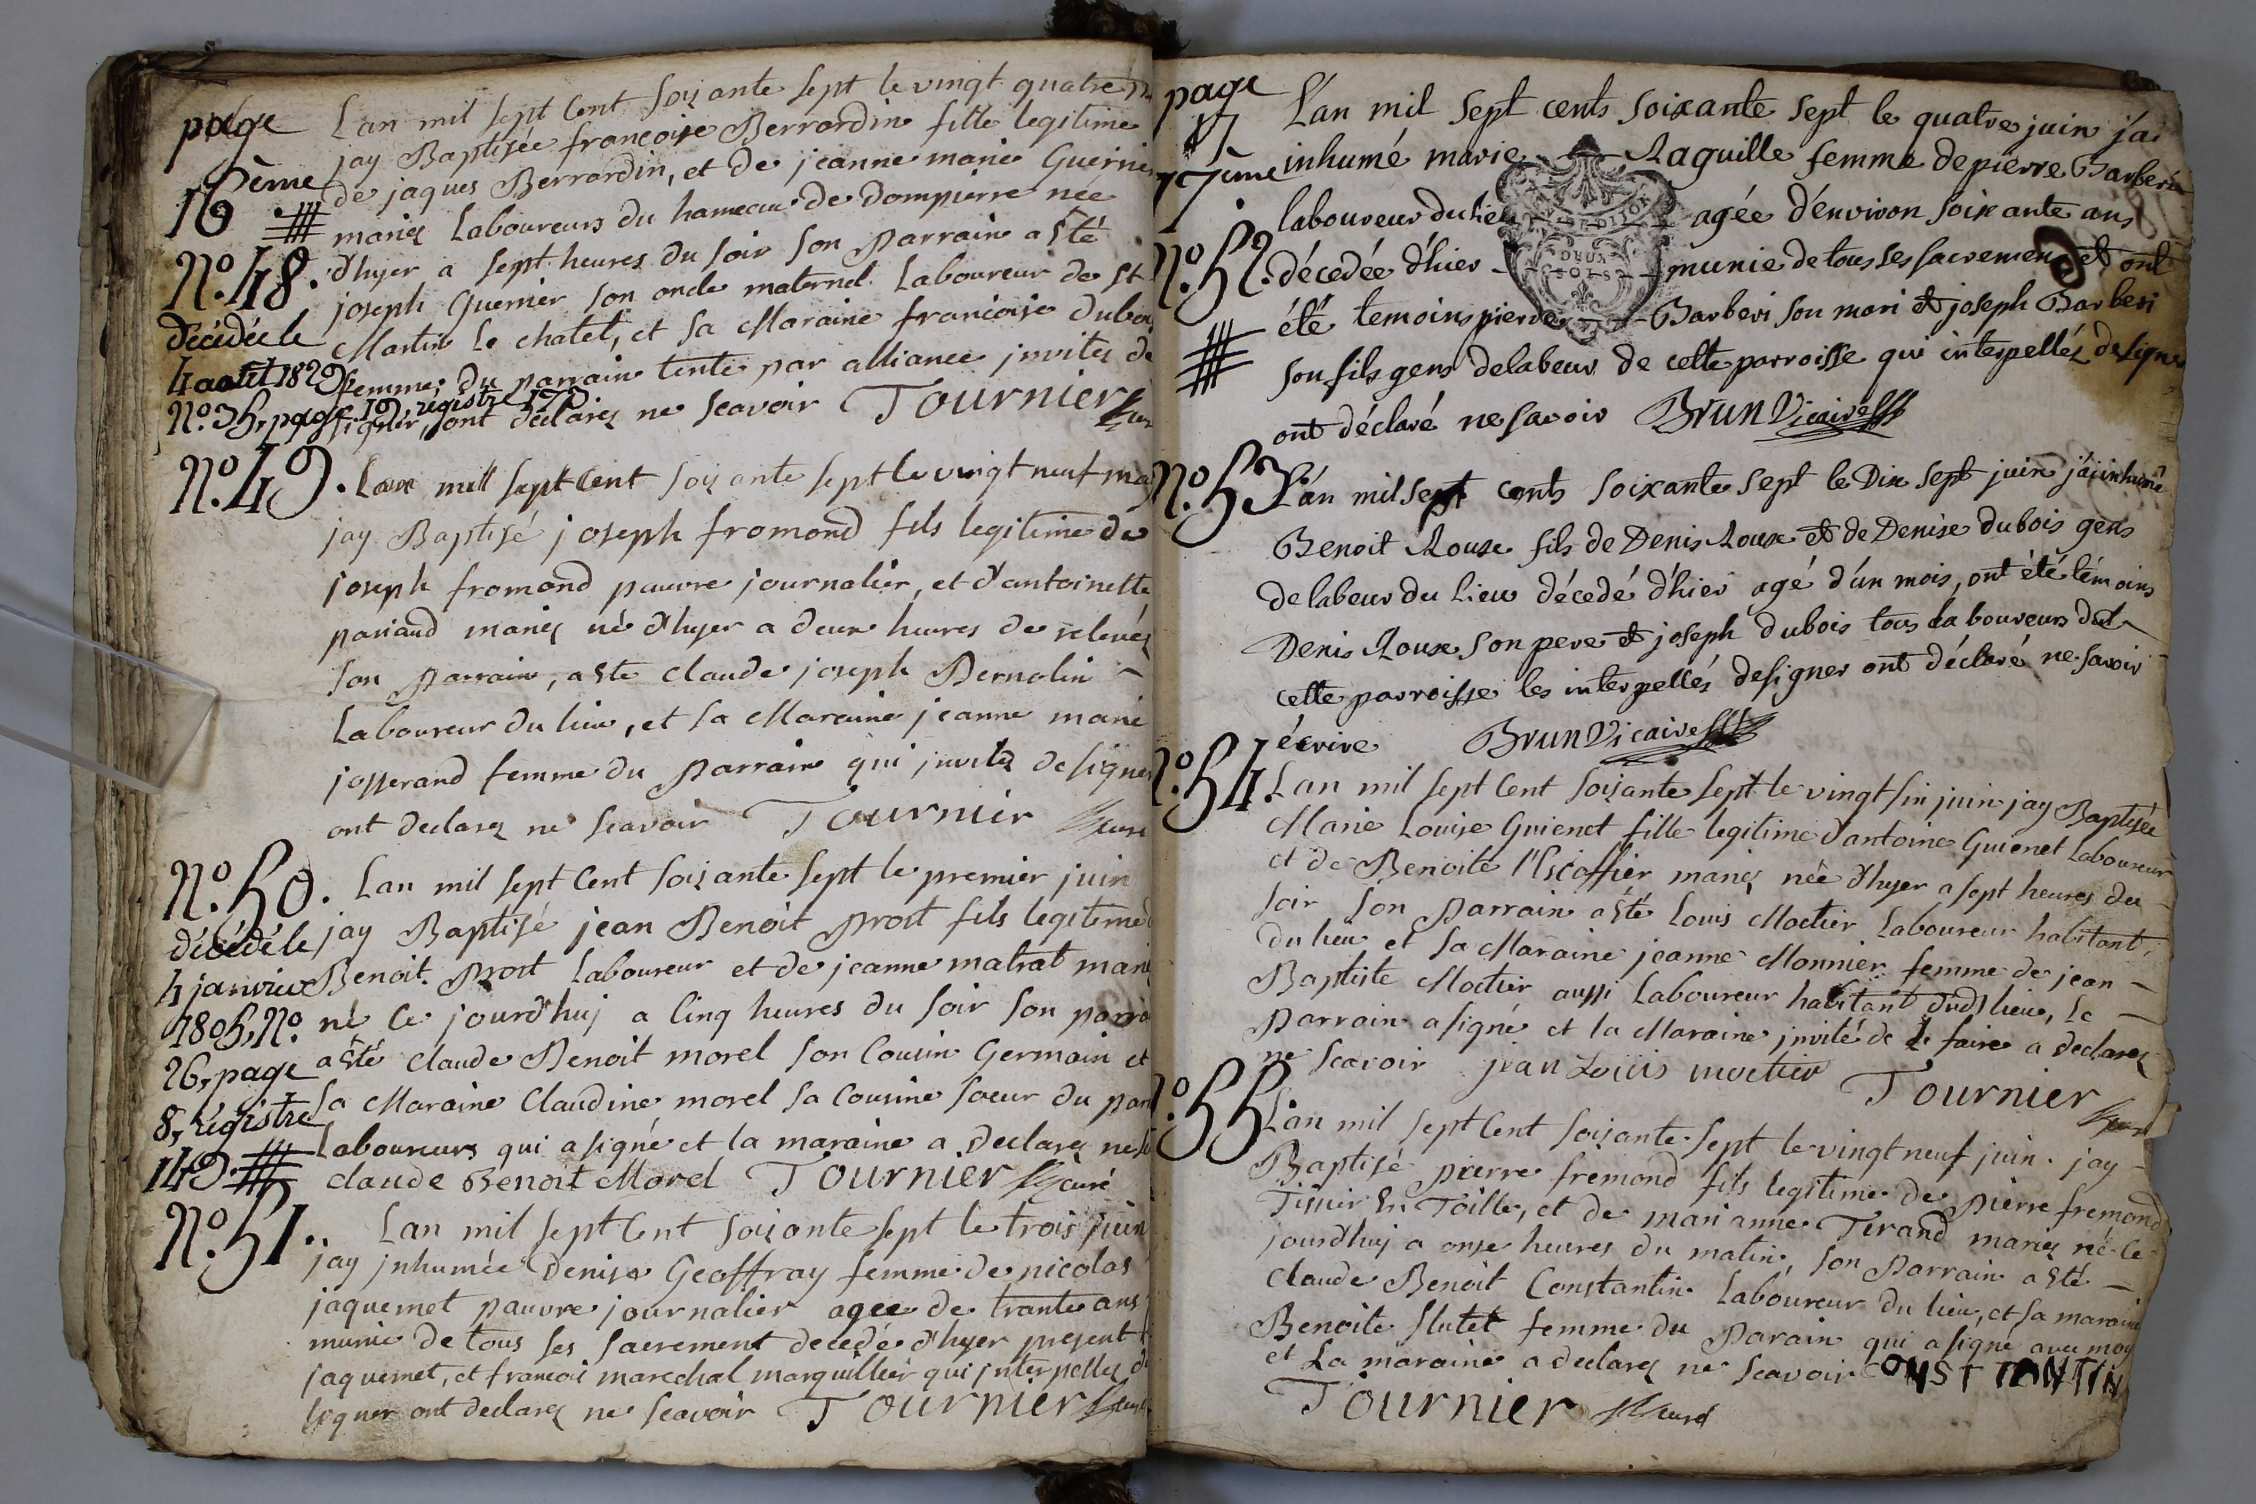 page
16ème
N°.48.
décédée le
4 aoùt 1829
N°.35, page 19, régistre 173
Lan mil sept Cent soixante sept le vingt quatre
jay Baptisée françoise Berrordin fille legitime
de jaques Berrordin, et de jeanne marie Guerrier
mariez Laboureurs du hameau de dompierre née
d'hyer a sept heures du soir son parrain a Sté
joseph Guerrier son oncle maternel Laboureur de St
Martin le chatel, et sa Maraine francoise dubois
femme du parrain tente par alliance invitez de
signer, ont declarez ne scavoir Tournier Curé
N°.49.
Lan mil sept Cent soixante sept le vingt neuf may
jay Baptisé joseph fromond fils legitime de
joseph fromond pauvre journalier, et d'antoinette
pariaud mariez né d'hyer a deux heures de relevez
son parrain, a Ste claude joseph Bernolin
Laboureur du lieu, et sa Maraine jeanne marie
josserand femme du parrain qui invitez de signer
ont declarez ne scavoir Tournier Curé
N°.50.
décédé le
4 janvier
1805, N°
26, page
8, régistre
149.
Lan mil sept Cent soixante sept le premier juin
jay Baptisé jean Benoit prost fils legitime
Benoit prost Laboureur et de jeanne matrat mariez
né Ce jourd'huj a Cinq heures du soir son parrain
a Sté claude Benoit morel son Cousin Germain et
sa Maraine Claudine morel sa Cousine soeur du
Laboureurs qui a signé et la maraine a declarez
claude Benoit Morel Tournier Curé
N°.51.
Lan mil sept Cent soixante sept le trois juin
jay jnhumée Denise Geoffray femme de nicolas
jaquemet pauvre journalier agee de trante ans
munie de tous ses sacrement decedée d'hyer present
jaquemet, et francoi marechal marguillier qui jnterpellez de
signer ont declarez ne scavoir Tournier Curé
page
17
17ème
N°.52.
L'an mil sept cents soixante sept le quatre juin j'ai
inhumé marie Raguille femme de pierre Barberi
laboureur du lieu agée d'environ soixante ans
décedée d'hier munie de tous ses sacremens et ont
été temoins pierre Barberi son mari et joseph Barberi
son fils gens de labeur de cette parroisse qui interpellés de signer
ont déclaré ne savoir Brun Vicaire
DEUX
SOLS
N°.53.
L'an mil sept cents soixante sept le Dix sept juin j'ai inhumé
Benoit Roux fils de Denis Roux et de Denise dubois gens
de labeur du Lieu décedé d'hier agé d'un mois, ont été témoins
Denis Roux son pere et joseph dubois tous laboureurs de
cette parroisse les interpellés de signer ont déclaré ne savoir
écrire Brun Vicaire
N°.54.
Lan mil sept Cent soixante sept le vingt six juin jay Baptisée
Marie Louise Guienet fille legitime d'antoine Guienet Laboureur
et de Benoite l'Escoffier mariez née d'hyer a sept heures du
soir son parrain a Sté Louis Moctier Laboureur habitant
du lieu et sa Maraine jeanne Monnier femme de jean
Baptiste Moctier aussi Laboureur habitant dud lieu, le
parrain a signé et la Maraine jnvité de le faire a declarez
ne scavoir jean Louis moctier Tournier Curé
N°.55.
Lan mil sept Cent soixante sept le vingt neuf juin jay
Baptisé pierre fremond fils legitime de pierre fremond
Tissier En Toille, et de marianne Tirand mariez né ce
jourd'huj a onze heures du matin, son parrain a Sté
Claude Benoit Constantin Laboureur du lieu, et sa maraine
Benoite flutet femme du parain qui a signé avec moy
et La maraine a declarez ne scavoir CONSTTANTIN
Tournier Curé